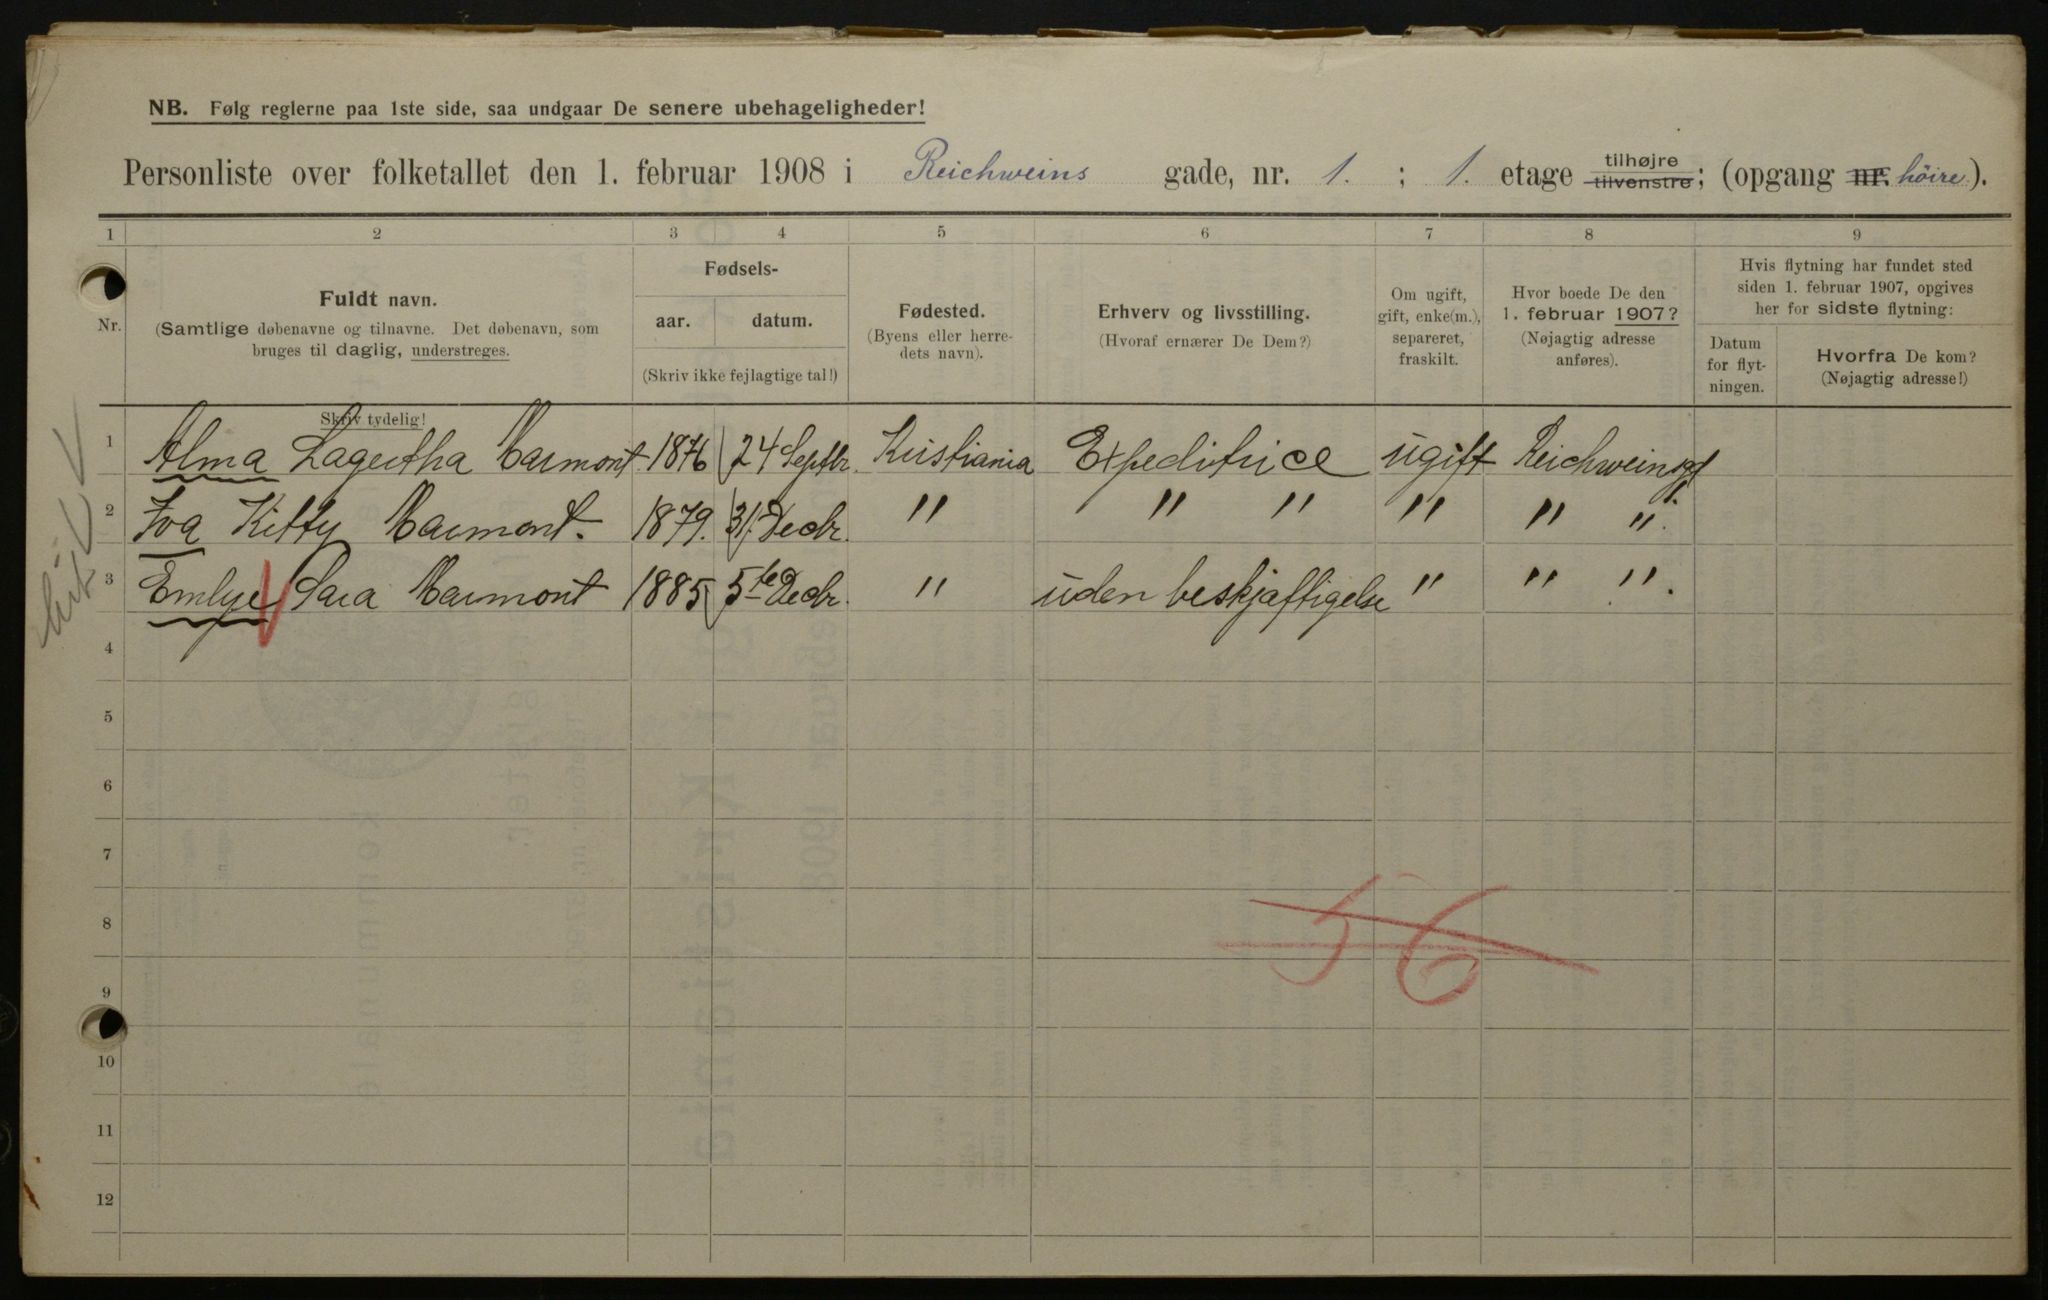 NB. Følg reglerne paa 1ste side, saa undgaar De senere ubehageligheder!
Personliste over folketallet den 1. februar 1908 i Reichweins gade, nr. 1. ; 1. etage tilhøjre tilvenstre; (opgang nr. höire.).
1 2 3 4 5 6 7 8 9
Nr.
Fuldt navn.
(Samtlige døbenavne og tilnavne. Det døbenavn, som
bruges til daglig, understreges.
Skriv tydelig!
Fødsels-
aar. datum.
(Skriv ikke fejlagtige tal!)
Fødested.
(Byens eller herre-
dets navn).
Erhverv og livsstilling.
(Hvoraf ernærer De Dem?)
Om ugift,
gift, enke(m.),
separeret,
fraskilt.
Hvor boede De den
1. februar 1907?
(Nøjagtig adresse
anføres).
Hvis flytning har fundet sted
siden 1. februar 1907, opgives
her for sidste flytning:
Datum
for flyt-
ningen.
Hvorfra De kom?
(Nøjagtig adresse!)
1 Alma Lagertha Marmont 1876 24 Septbr. Kristiania Expeditrice ugift Reichweinsgt 1.
2 Iva Kitty Marmont. 1879. 31. Decbr. " " " " " ".
3 Emlye Sara Marmont 1885 5te Decbr. " uden beskjæftigelse " " ".
4
5
6
7
8
9
10
11
12
56